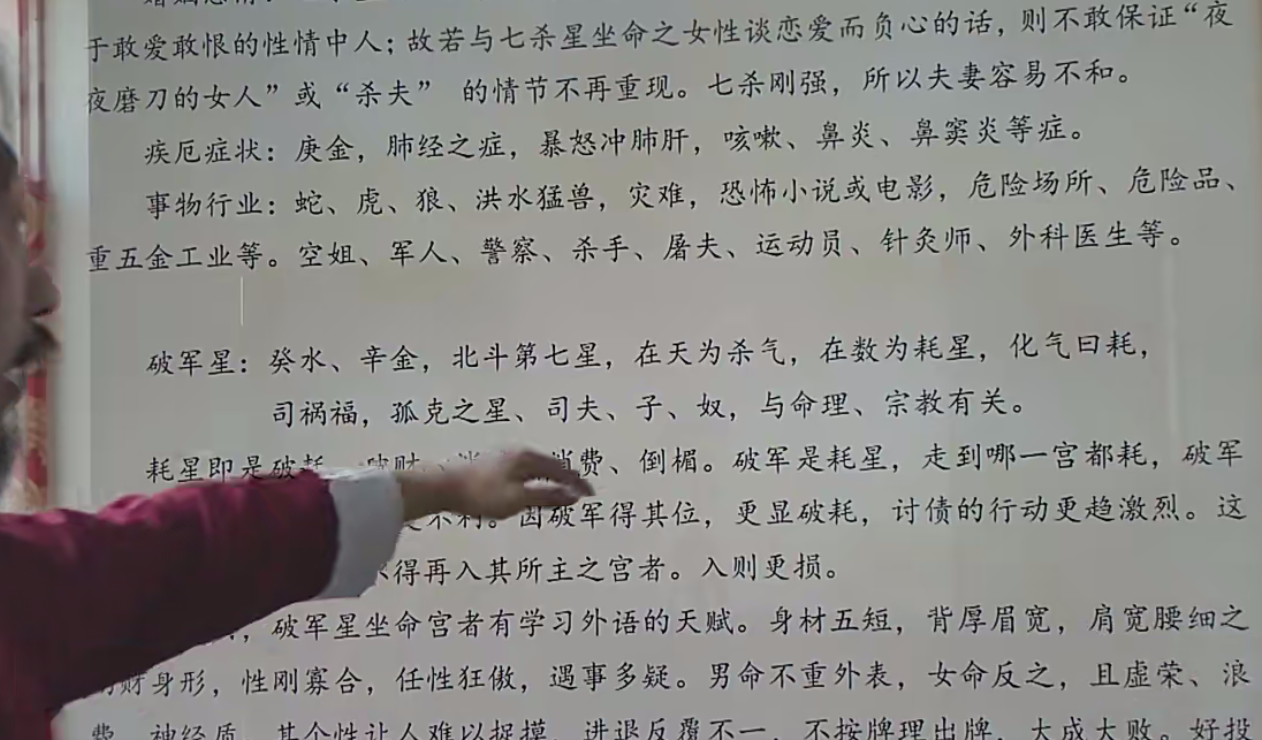 于敢爱敢恨的性情中人；故若与七杀星坐命之女性谈恋爱而负心的话，则不敢保证“夜
夜磨刀的女人”或“杀夫” 的情节不再重现。七杀刚强，所以夫妻容易不和。
疾厄症状：庚金，肺经之症，暴怒冲肺肝，咳嗽、鼻炎、鼻窦炎等症。
事物行业：蛇、虎、狼、洪水猛兽，灾难，恐怖小说或电影，危险场所、危险品、
重五金工业等。空姐、军人、警察、杀手、屠夫、运动员、针灸师、外科医生等。
破军星：癸水、辛金，北斗第七星，在天为杀气，在数为耗星，化气曰耗，
司祸福，孤克之星、司夫、子、奴，与命理、宗教有关。
耗星即是破耗、破财、消费、倒楣。破军是耗星，走到哪一宫都耗，破军
更不利。因破军得其位，更显破耗，讨债的行动更趋激烈。这
得再入其所主之宫者。入则更损。
，破军星坐命宫者有学习外语的天赋。身材五短，背厚眉宽，肩宽腰细之
财身形，性刚寡合，任性狂傲，遇事多疑。男命不重外表，女命反之，且虚荣、浪
费、神经质，其个性让人难以捉摸，进退反覆不一，不按牌理出牌，大成大败。好投